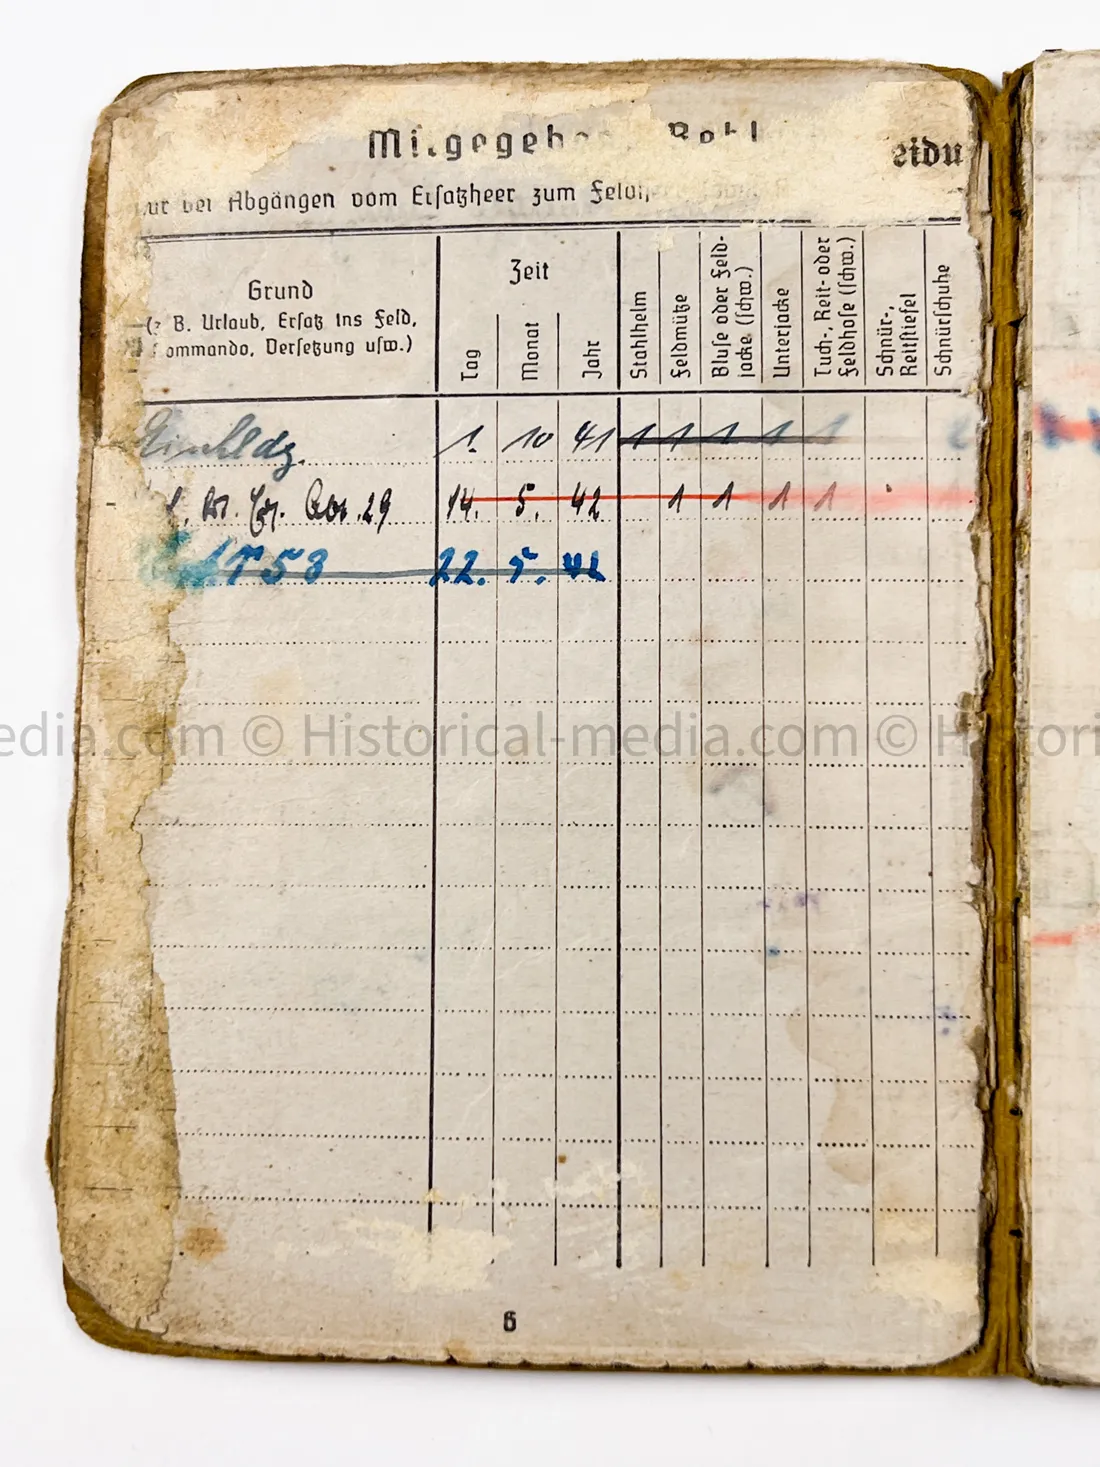 Mitgegeb
eidu
bei Abgängen vom Ersatzheer zum
Grund
B. Urlaub, Ersatz ins Feld,
ommando, Versetzung usw.)
Zeit
Tag
Monat
Jahr
Stahlhelm
Feldmütze
Bluse oder Feld-
jacke (schw.)
Unterjacke
Tuch-, Reit- oder
Feldhose (schw.)
Schnür-,
Reitstiefel
Schnürschuhe
1. 10 41 1 1 1 1 1
29 14. 5. 42 1 1 1 1
53 22. 5. 42
edia.com © Historical-media.com © Histori
6